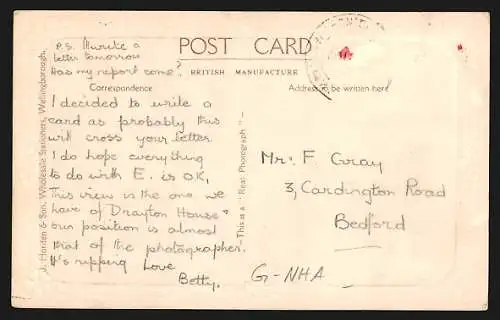 P.S. I'll write a
letter tomorrow
Has my report come?
POST CARD
BRITISH MANUFACTURE
Correspondence
Address to be written here
I decided to write a
card as probably this
will cross your letter
I do hope everything
to do with E. is OK,
This view is the one we
have of Drayton House &
our position is almost
that of the photographer.
It's ripping Love
Betty.
J. Harden & Son, Wholesale Stationers, Wellingborough.
This is a "Real Photograph"
Mr. F. Gray
3, Cardington Road
Bedford
G-NHA